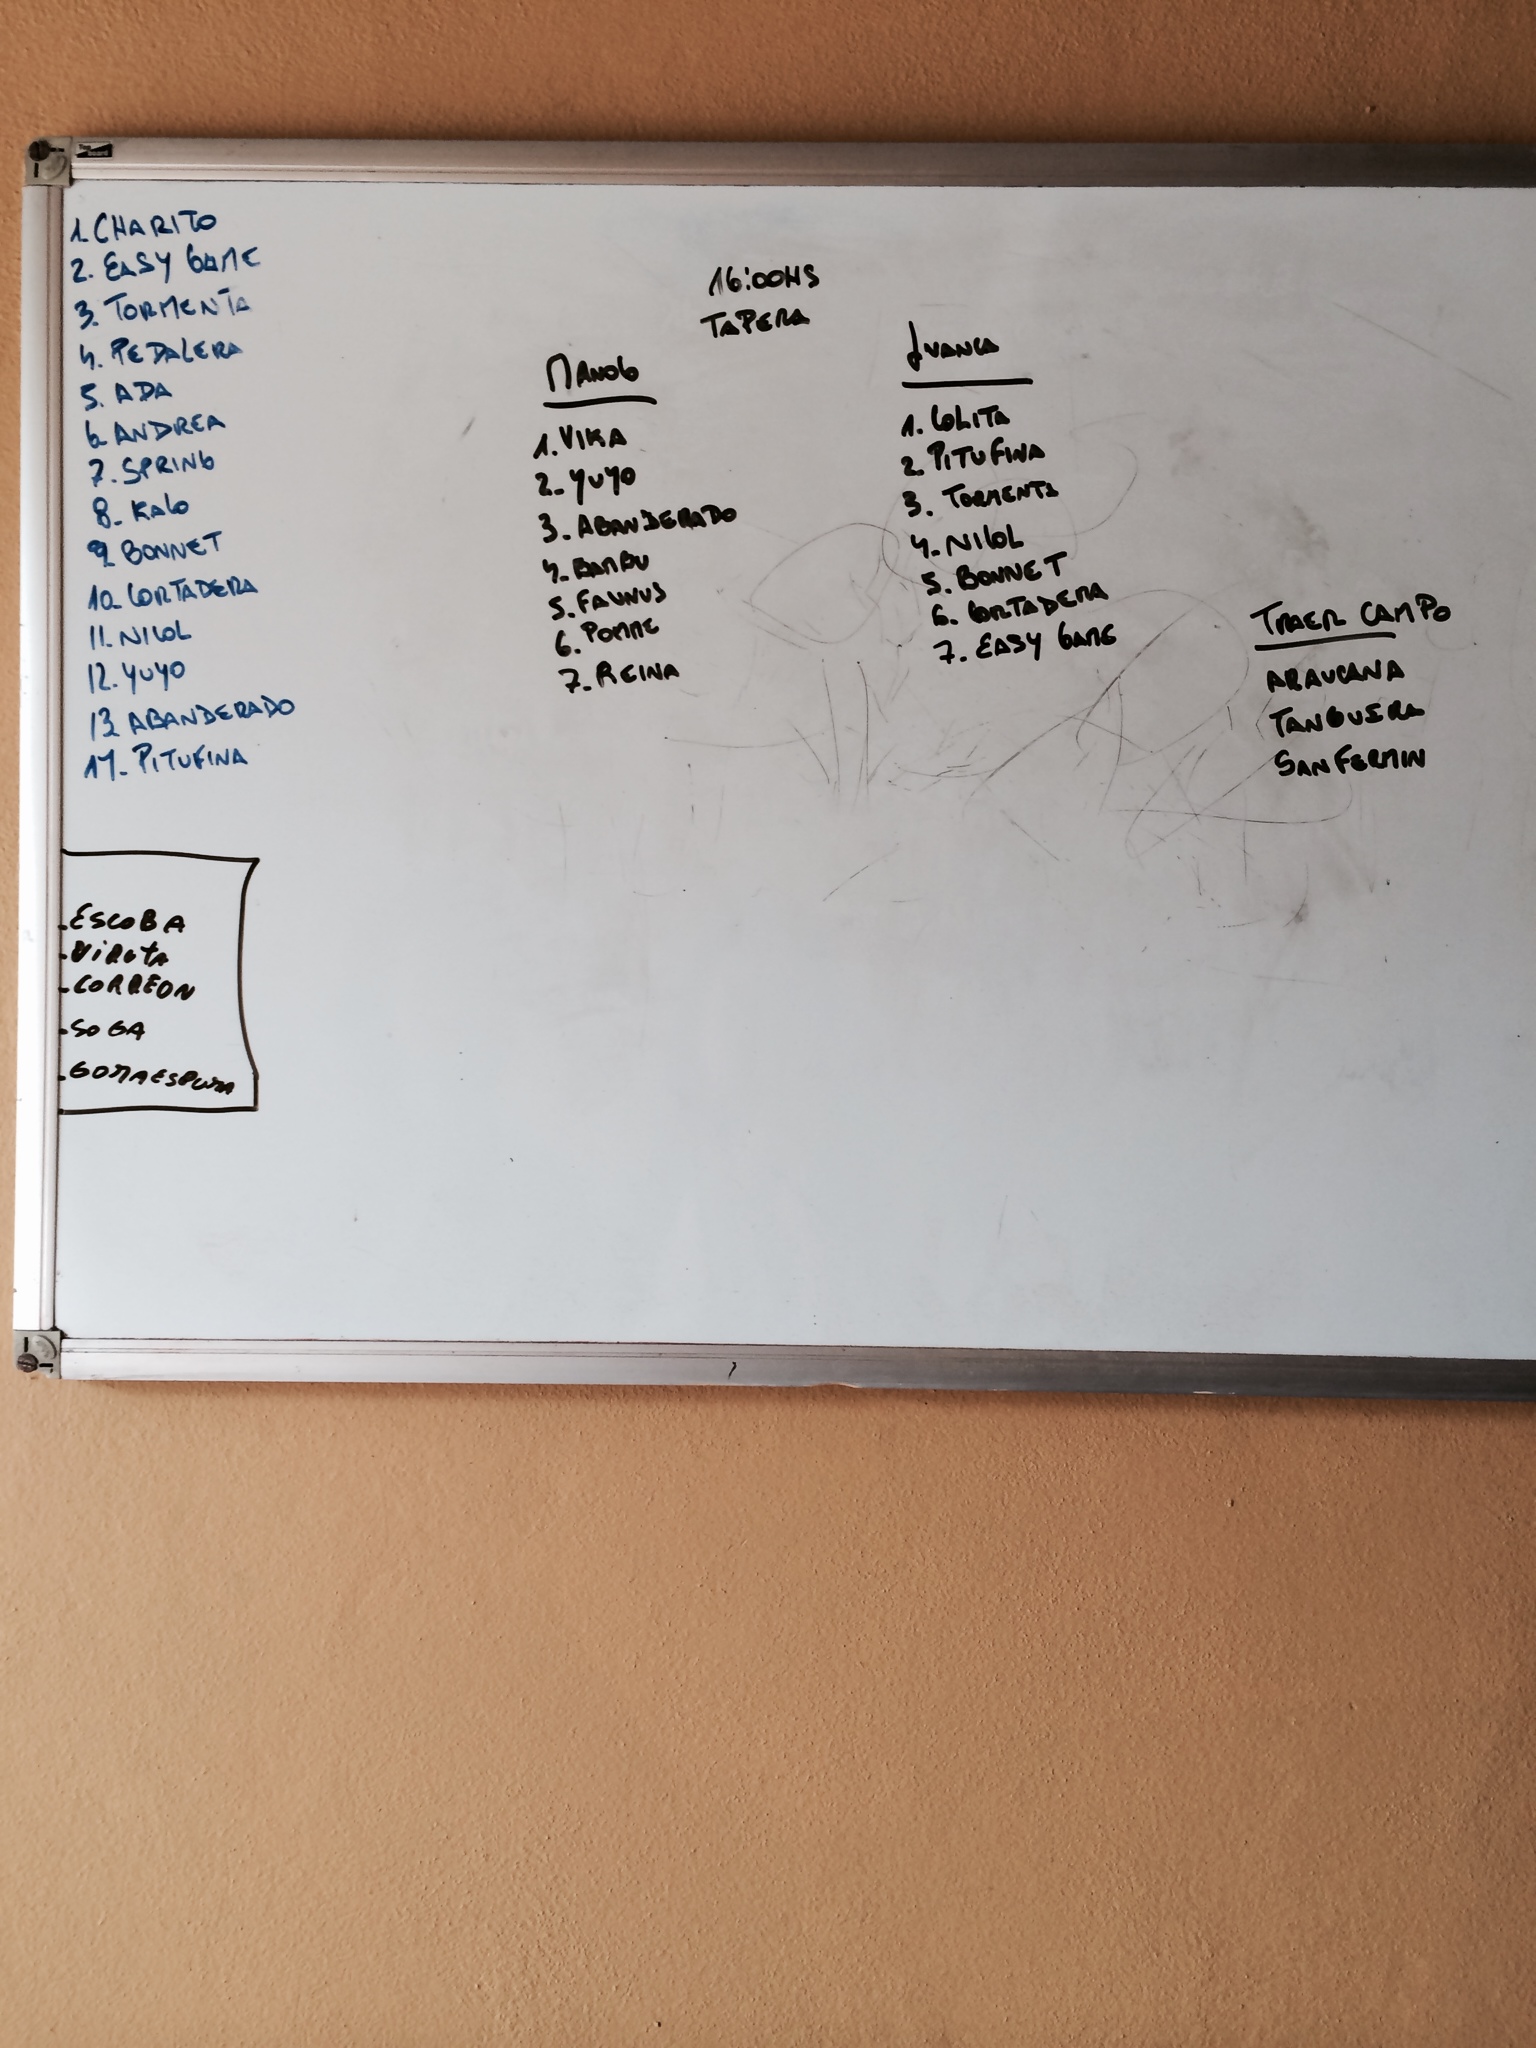 1. CHARITO
2. EASY GAME
3. TORMENTA
4. PEDALERA
5. ADA
6. ANDREA
7. SPRING
8. KALO
9. BONNET
10. CORTADERA
11. NICOL
12. YUYO
13. ABANDERADO
14. PITUFINA
ESCOBA
VIRUTA
CORREON
SOGA
GOMAESPUMA
16:00HS
TAPERA
MANOLO
1. VIKA
2. YUYO
3. ABANDERADO
4. BAMBU
5. FAUNUS
6. POMME
7. REINA
JUANCA
1. LOLITA
2. PITUFINA
3. TORMENTA
4. NICOL
5. BONNET
6. CORTADERA
7. EASY GAME
TRAER CAMPO
ARAUCANA
TANGUERA
SAN FERMIN